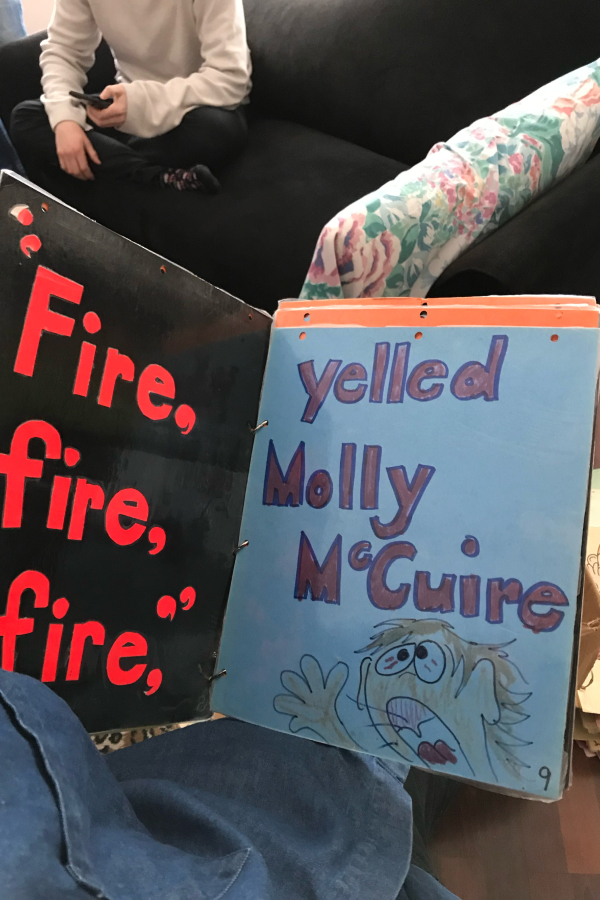 “Fire,
fire,
fire,”
yelled
Molly
McCuire
9